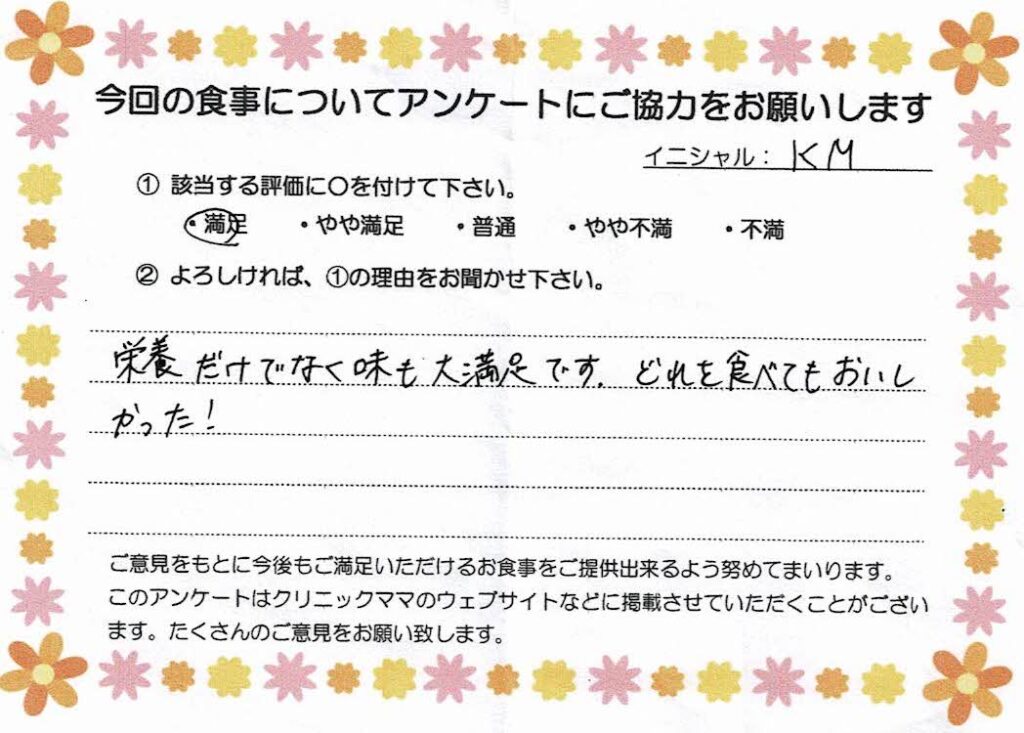 今回の食事についてアンケートにご協力をお願いします
イニシャル： KM
① 該当する評価に〇を付けて下さい。
・満足 ・やや満足 ・普通 ・やや不満 ・不満
② よろしければ、①の理由をお聞かせ下さい。
栄養だけでなく味も大満足です。どれを食べてもおいし
かった！
ご意見をもとに今後もご満足いただけるお食事をご提供出来るよう努めてまいります。
このアンケートはクリニックママのウェブサイトなどに掲載させていただくことがござい
ます。たくさんのご意見をお願い致します。